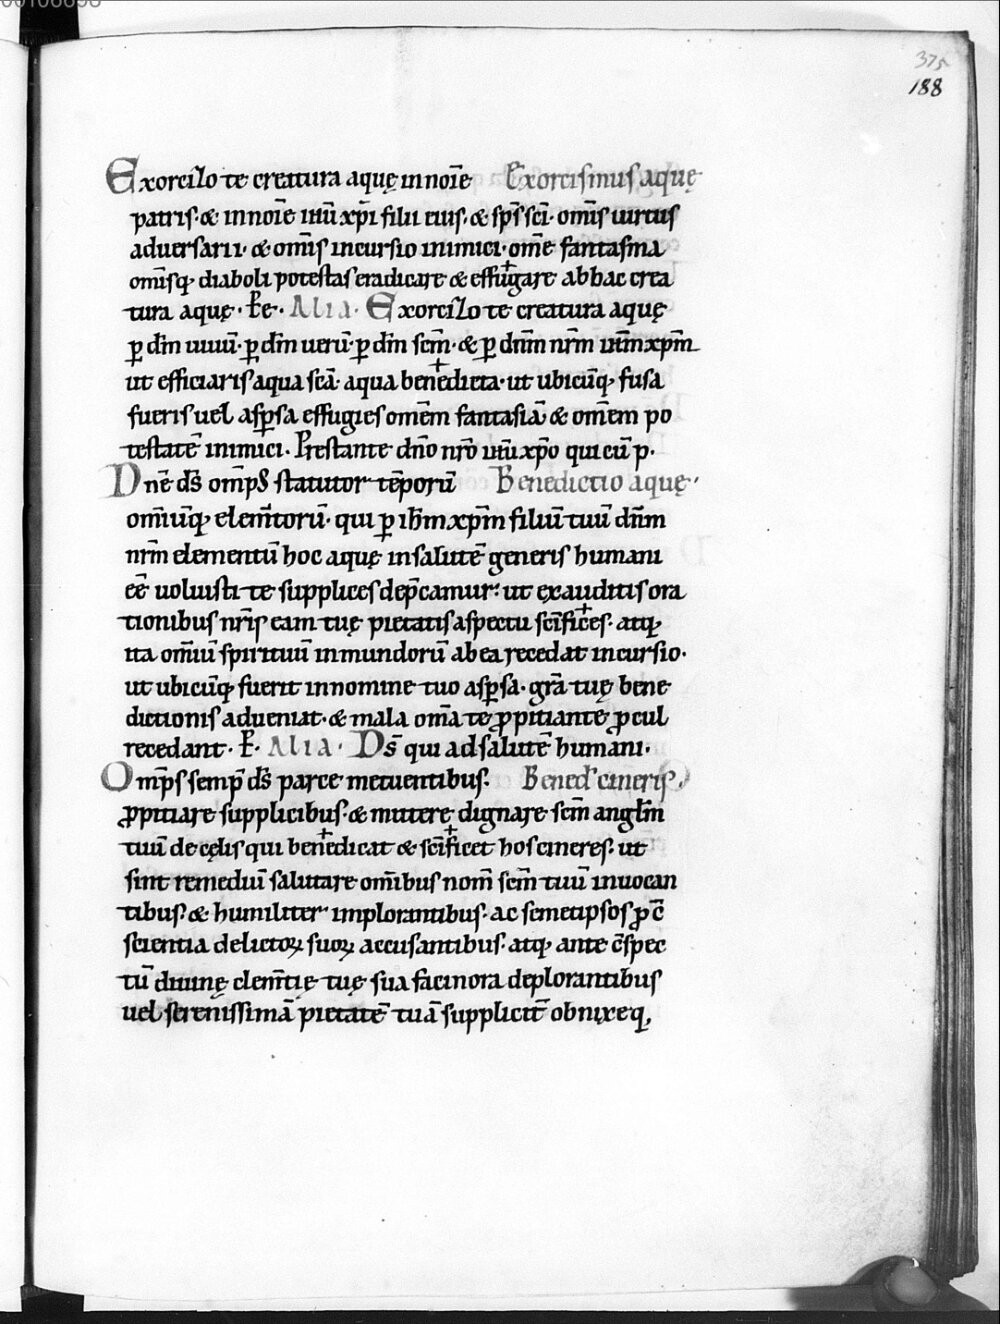 375
188
Exorcizo te creatura aquę in noīe Exorcismus aquę
patris · & in noīe ihū xp̄i filii eius · & sp̄s sc̄i · om̄is uirtus
aduersarii · & om̄is incursio inimici · om̄e fantasma
om̄isq; diaboli potestas eradicare & effugare ab hac crea
tura aquę · P̄e · Alia · Exorcizo te creatura aquę
ꝑ dm̄ uiuū · ꝑ dm̄ uerū · ꝑ dm̄ scm̄ · & ꝑ dn̄m nr̄m ihm̄ xp̄m
ut efficiaris aqua scā aqua benedicta · ut ubicūq; fusa
fueris uel asꝑsa effugies om̄em fantasiā & om̄em po
testatē inimici · Prestante dn̄o nr̄o ihū xp̄o qui cū p ·
Dn̄e ds̄ om̄ps statutor tēporū Benedictio aquę ·
om̄iūq; elem̄torū · qui ꝑ ihm̄ xp̄m filiū tuū dn̄m
nr̄m elementū hoc aquę in salutē generis humani
eē uoluisti te supplices dep̄camur : ut exauditis ora
tionibus nr̄is eam tuę pietatis aspectu sc̄ifices · atq;
ita om̄iū spirituū inmundorū ab ea recedat incursio ·
ut ubicūq; fuerit in nomine tuo asꝑsa · gr̄a tuę bene
dictionis adueniat · & mala om̄a te ꝓpitiante ꝓcul
recedant · P̄ · Alia · Ds̄ qui ad salutē humani ·
Om̄ps semp̄ ds̄ parce metuentibus · Bened̄ cineris
ꝓpitiare supplicibus · & mittere dignare scm̄ anglm̄
tuū de cęlis qui benedicat & sc̄ificet hos cineres · ut
sint remediū salutare om̄ibus nom̄ scm̄ tuū inuocan
tibus · & humiliter implorantibus · ac semetipsos ꝓ c̄
scientia delictoꝝ suoꝝ accusantibus · atq; ante c̄spec
tū diuinę clem̄tię tuę sua facinora deplorantibus
uel serenissimā pietatē tuā supplicit̄ obnixeq;